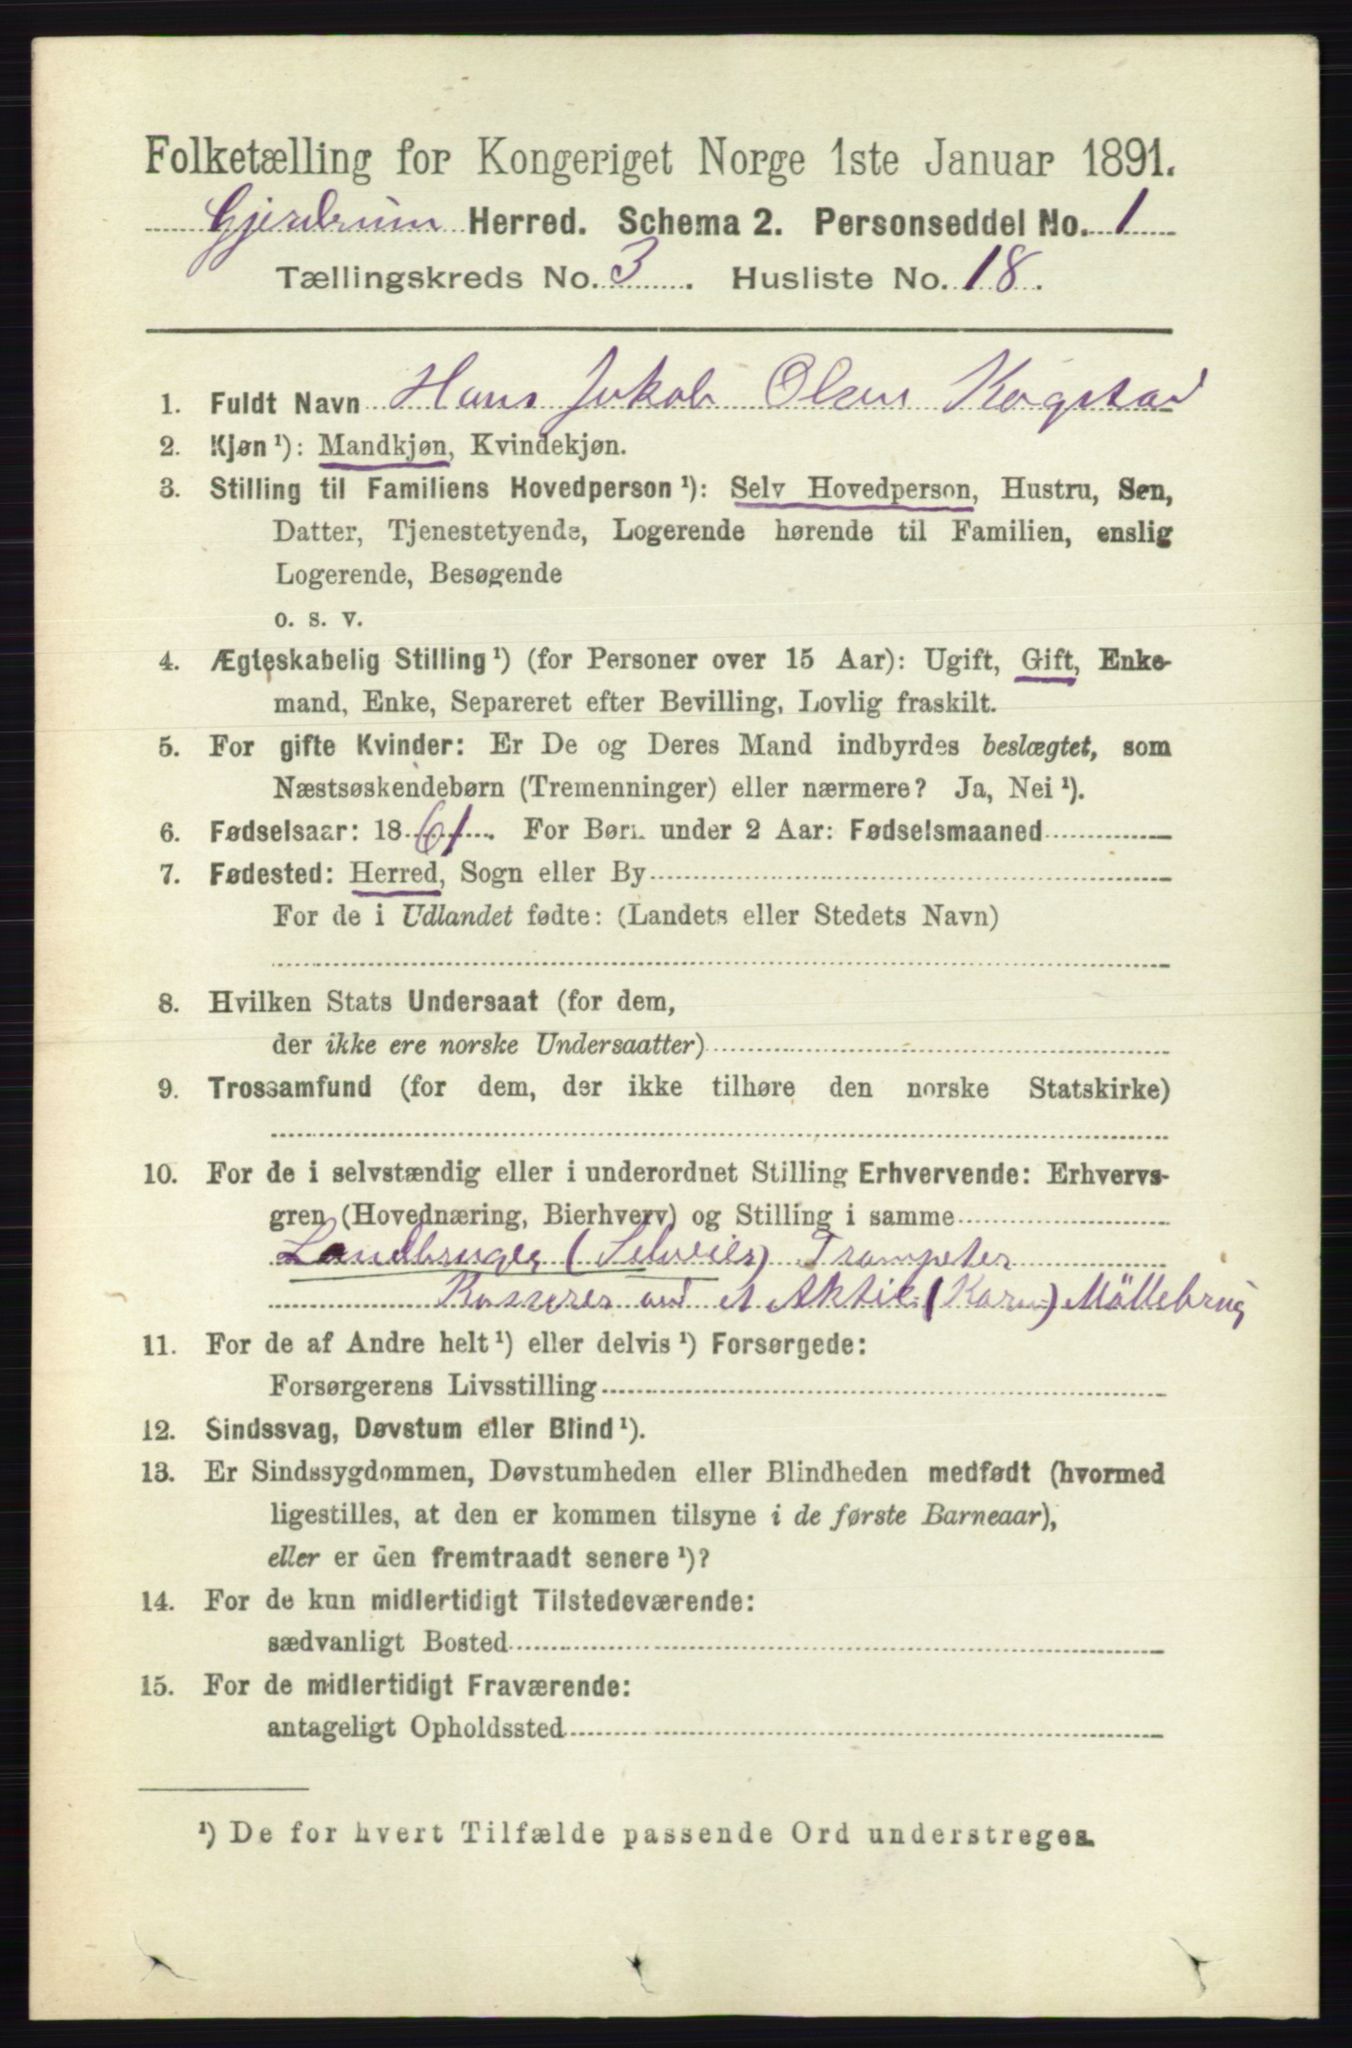 Folketælling for Kongeriget Norge 1ste Januar 1891.
Gjerdrum Herred. Schema 2. Personseddel No. 1
Tællingskreds No. 3. Husliste No. 18.
1. Fuldt Navn Hans Jakob Olsen Kogstad
2. Kjøn¹): Mandkjøn, Kvindekjøn.
3. Stilling til Familiens Hovedperson¹): Selv Hovedperson, Hustru, Søn,
Datter, Tjenestetyende, Logerende hørende til Familien, enslig
Logerende, Besøgende
o. s. v.
4. Ægteskabelig Stilling¹) (for Personer over 15 Aar): Ugift, Gift, Enke-
mand, Enke, Separeret efter Bevilling, Lovlig fraskilt.
5. For gifte Kvinder: Er De og Deres Mand indbyrdes beslægtet, som
Næstsøskendebørn (Tremenninger) eller nærmere? Ja, Nei¹).
6. Fødselsaar: 1861. For Børn under 2 Aar: Fødselsmaaned
7. Fødested: Herred, Sogn eller By
For de i Udlandet fødte: (Landets eller Stedets Navn)
8. Hvilken Stats Undersaat (for dem,
der ikke ere norske Undersaatter)
9. Trossamfund (for dem, der ikke tilhøre den norske Statskirke)
10. For de i selvstændig eller i underordnet Stilling Erhvervende: Erhvervs-
gren (Hovednæring, Bierhverv) og Stilling i samme
Landbruger (Selveier) Trompeter
Kasserer ved et Aktie (Korn) Möllebrug
11. For de af Andre helt¹) eller delvis¹) Forsørgede:
Forsørgerens Livsstilling
12. Sindssvag, Døvstum eller Blind¹).
13. Er Sindssygdommen, Døvstumheden eller Blindheden medfødt (hvormed
ligestilles, at den er kommen tilsyne i de første Barneaar),
eller er den fremtraadt senere¹)?
14. For de kun midlertidigt Tilstedeværende:
sædvanligt Bosted
15. For de midlertidigt Fraværende:
antageligt Opholdssted
¹) De for hvert Tilfælde passende Ord understreges.